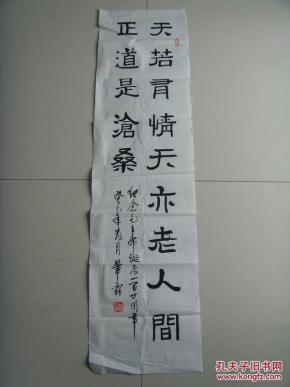 天若有情天亦老人間
正道是滄桑
紀念毛主席誕辰一百廿周年
癸巳年
孔夫子旧书网